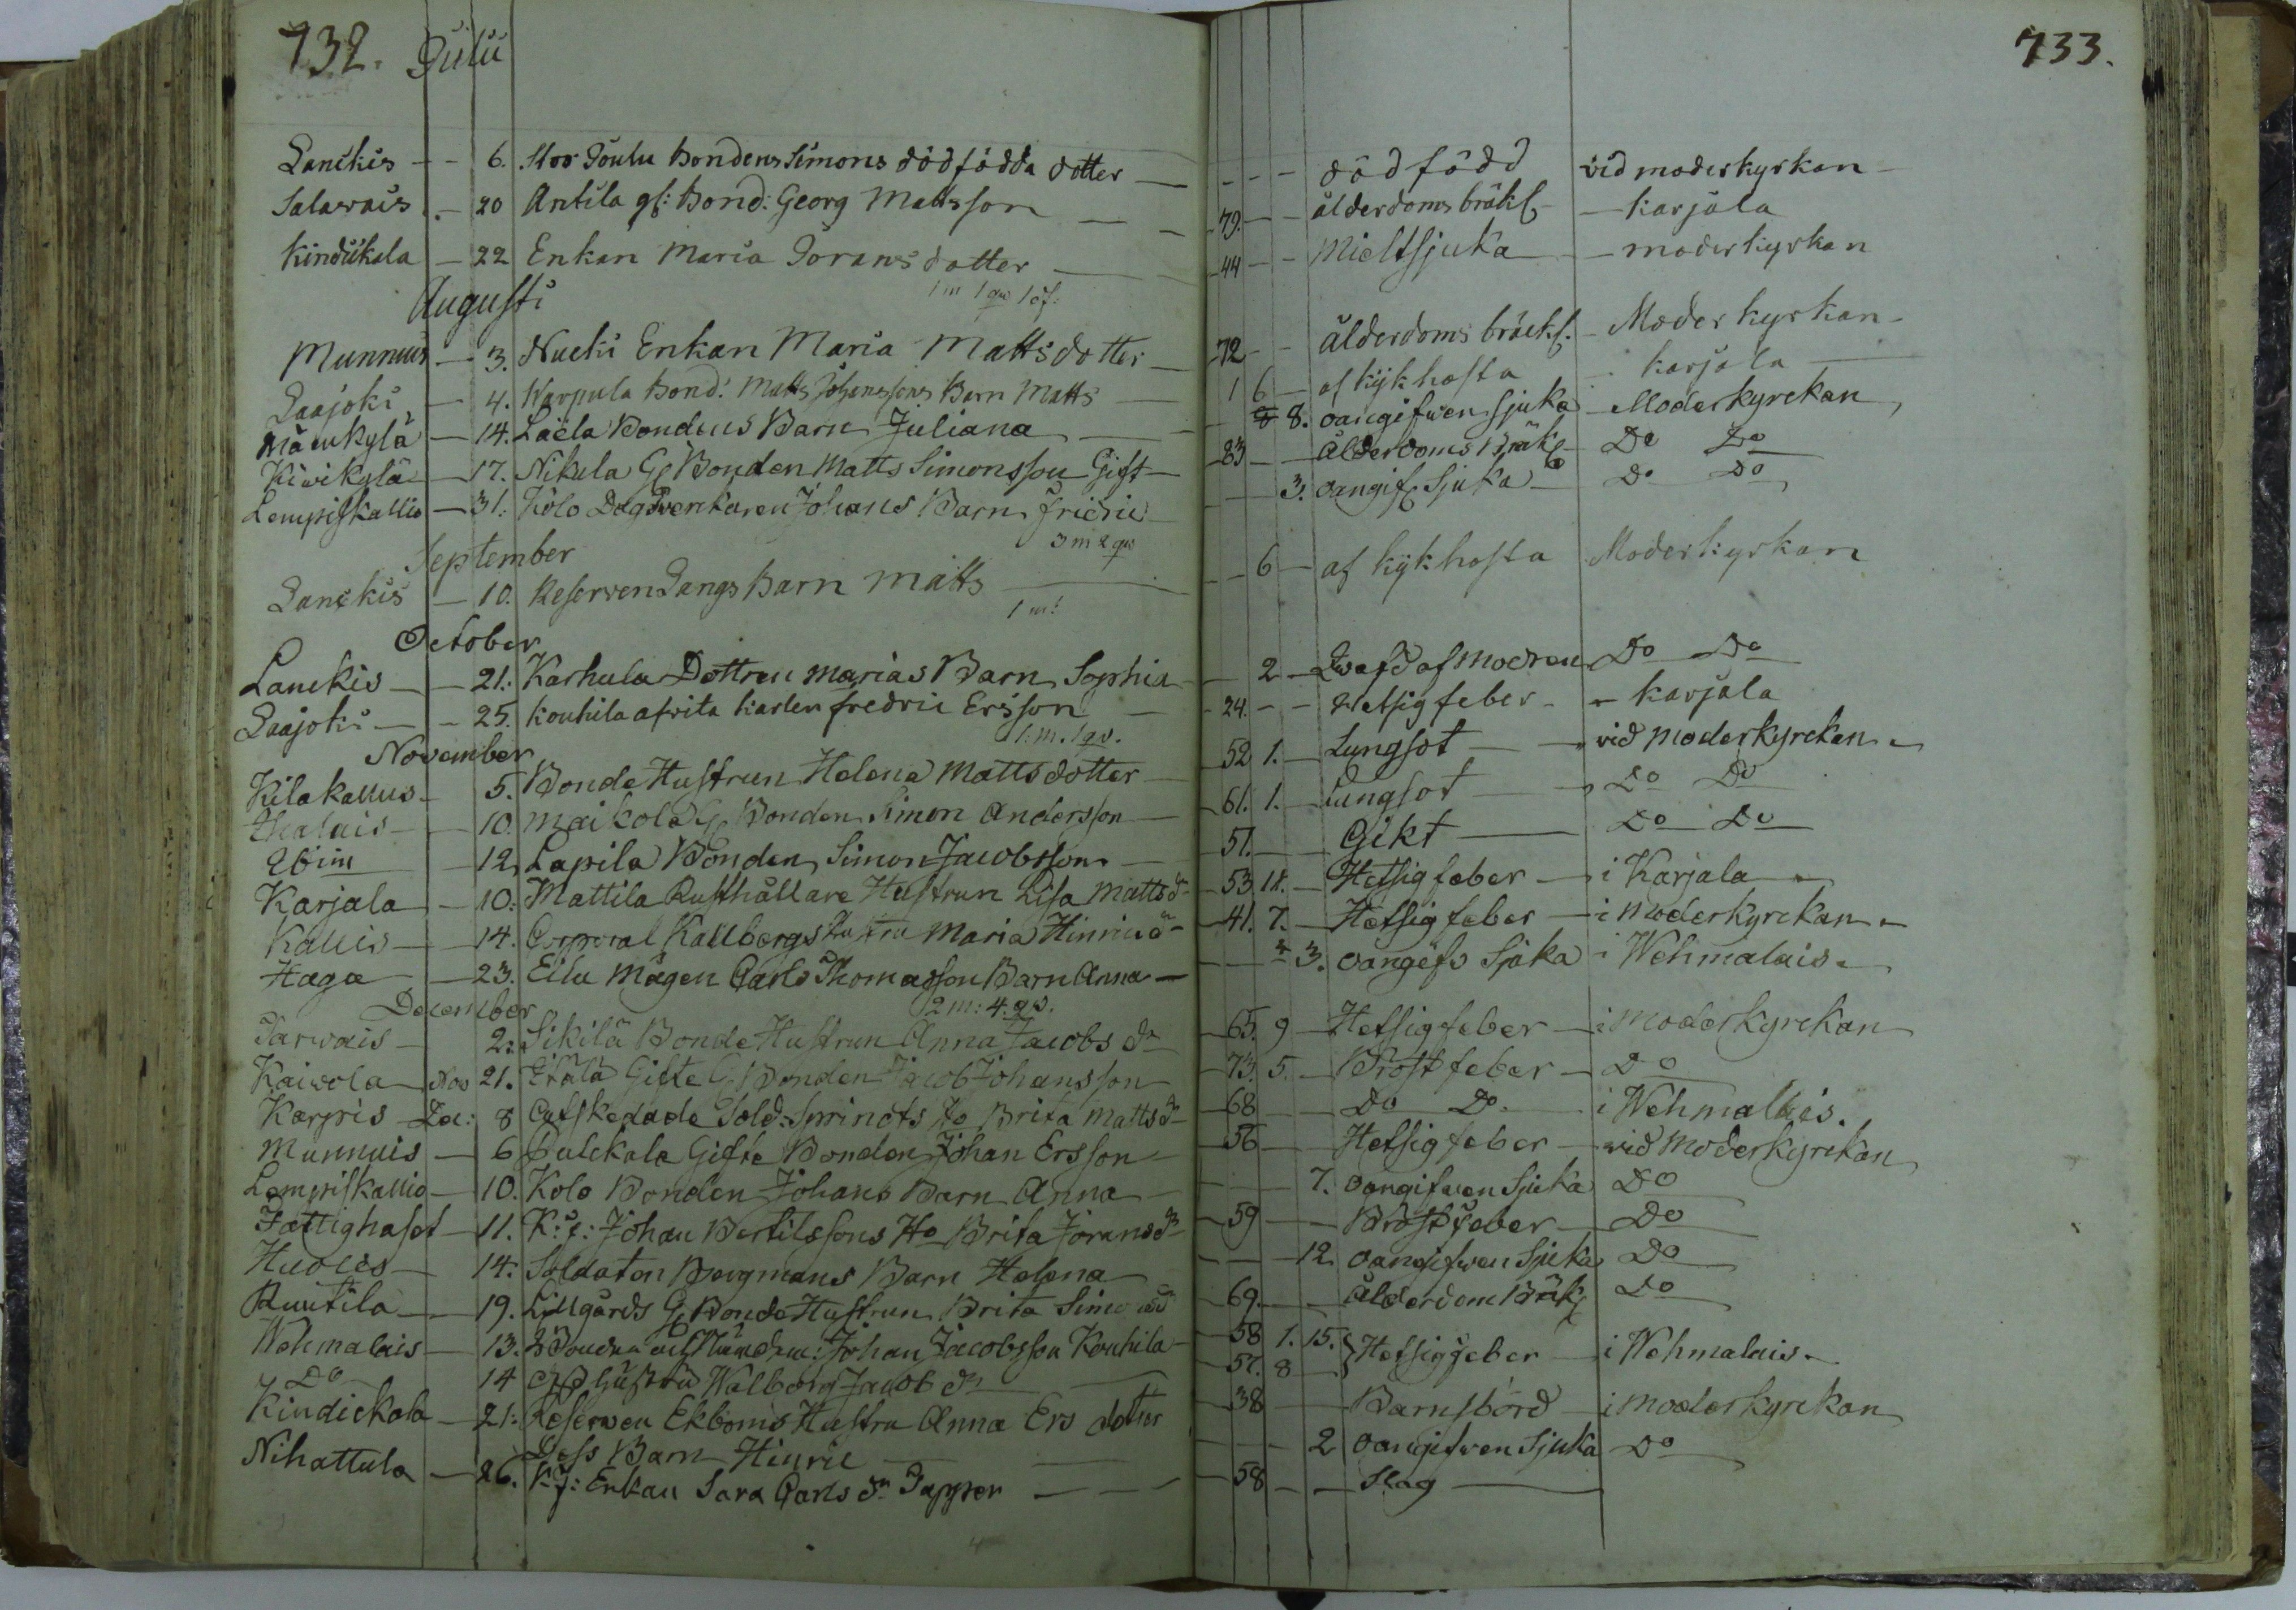 732. Julii
Lanckis - - 6. Stor Joulu Bondens Simons dödfödda dotter
Salavais - 20 Antila gl: Bond: Georg Mattsson
Kindikala - 22 Enkan Maria Jöransdotter
1 m 1 qw 1 öf:
Augusti
Munnuis - 3. Nucki Enkan Maria Mattsdotter
Laajoki - 4. Warpula Bond: Matts Johanssons Barn Matts
Männkylä - 14. Laela Bondens Barn Juliana
Kiwikylä - 17. Nikula Gl Bonden Matts Simonsson Gift
Lempiskallio - 31. Kolo Dagsverkaren Johans Barn Fridric
3 m 2 qw
September
Lanckis - 10. Reserven Langs Barn Matts
1 m:
October
Lanckis - 21. Karhula Dottren Marias Barn Sophia
Laajoki - 25. Kouhila afsita karlen fredric Ersson
1.m. 1 qv.
November
Kilakallus - 5. Bonde Hustrun Helena Mattsdotter
Thalais - 10. Maikola Gl Bonden Simon Andersson
12, Lapila Bonden Simon Jacobsson
Karjala - 10. Mattila Rusthållare Hustrun Lisa Matts dr
Kallis - 14. Corporal Kallbergs Hustru Maria Hinrics dr
Haga - 23. Eilu Mågen Carls Thomasson Barn Anna
2 m: 4. qv.
December
Tarvais - 2. Sikilä Bonde Hustrun Anna Jacobs dr
Kaivola Nov 21. Eitälä Gifte Gl Bonden Jacob Johansson
Karpis De: 8 Sold: Sprincts Ho Brita Matts dr
Munnuis - 6 Pulckala Gifte Bonden Johan Ersson
Lempiskallio - 10. Kolo Bonden Johans Barn Anna
Fattighaset - 11. K: f: Johan Bertilssons Ho Brita Jörans dr
Huolis - 14. Soldaten Bergmans Barn Helena
Ruutila - 19. Lillgårds Gl BondeHustrun Brita Simons dr
Wehmalais - 13. Bonden Johan Jacobsson Kouhila
Do 14 hustru Walborg Jacob dr
Kindickala - 21. Reserven Ekboms Hustru Anna Ers dotter
Dess Barn Hinric
Nihattula - 26. K f: Enkan Sara Carls dr Tapper
733.
- - - dödfödd vid moderkyrkan
79. - - ålderdoms bräckl - Karjala
44 - - Mieltsjuka - moderkyrkan
72 - - ålderdoms bräckl. - Moder kyrkan
1 6 - af kikhosta - Karjala
8. oangifwen sjuka - Moderkyrckan
83 - - Ålderdoms Bräkl Do Do
3. oangif Sjuka - Do Do
6 - af kikhosta Moderkyrkan
2 - Qväfd af Modren Do Do
24. - - Hetsig feber - Karjala
52 1. - Lungsot - vid Moderkyrckan
61. 1. - Lungsot - Do Do
51. Gikt - Do Do
53 18. - Hetsig feber - i Karjala
41. 7. - Hetsig feber - i Moderkyrckan
3. oangifv Sjuka i Wehmalais
65. 9 - Hetsig feber - i Moderkyrckan
73. 5. - Bröstfeber - Do
68 Do Do. i Wehmalais.
56 Hetsig feber - vid Moderkyrckan
7. oangifwen Sjuka Do
59 - Bröstfeber - Do
12 oangifwen Sjuka Do
69. - ålderdom Bräkl Do
58 1. 15. } Hetsig feber - i Wehmalais.
57. 8
38 - Barnsbörd - i Moderkyrckan
2 oangifwen Sjuka Do
58 - - Slag